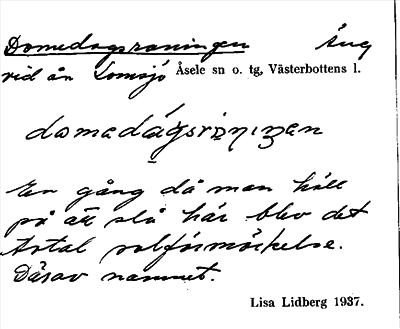 Domedagsraningen Äng
vid ån Lomsjö Åsele sn o. tg, Västerbottens l.
domedágsrìni̮ŋen
En gång då man höll
på att slå här blev det
total solförmörkelse.
Därav namnet.
Lisa Lidberg 1937.